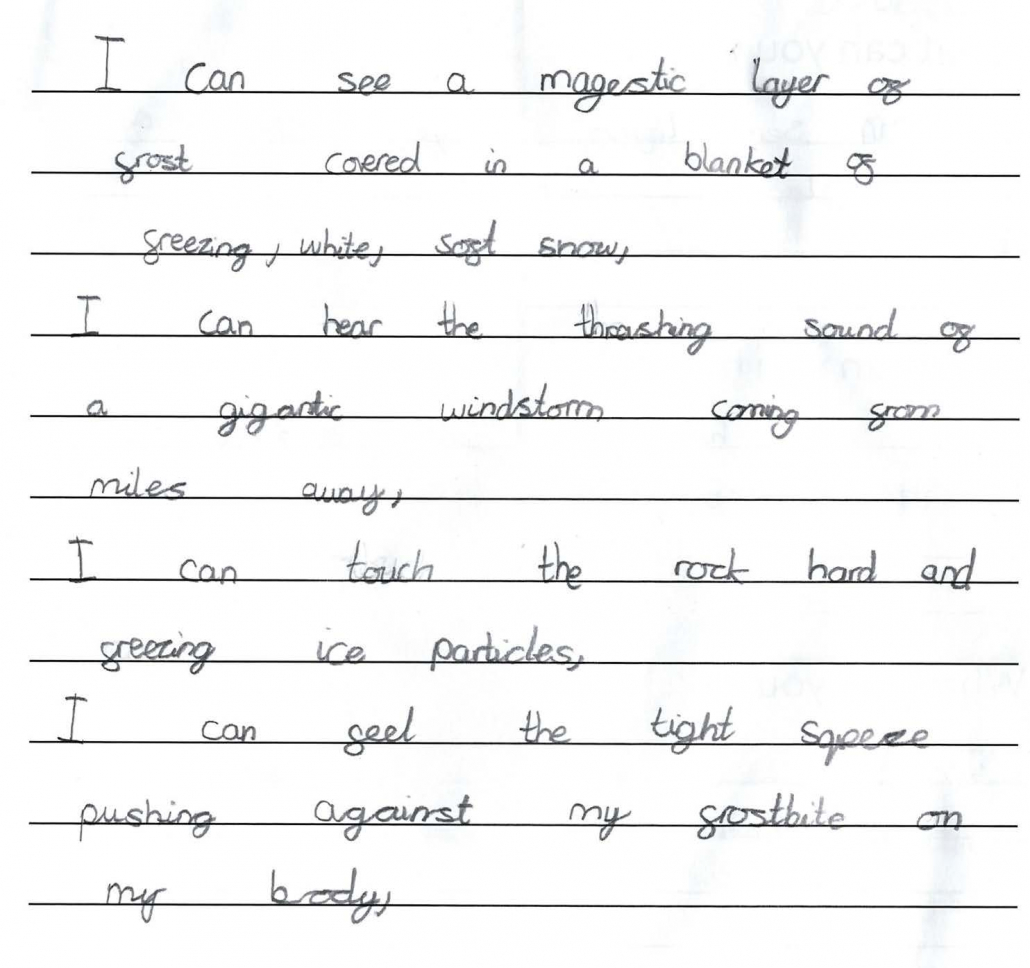 I can see a magestic layer of
frost covered in a blanket of
freezing, white, soft snow,
I can hear the thrashing sound of
a gigantic windstorm coming from
miles away,
I can touch the rock hard and
freezing ice particles,
I can feel the tight sqeeze
pushing against my frostbite on
my body,